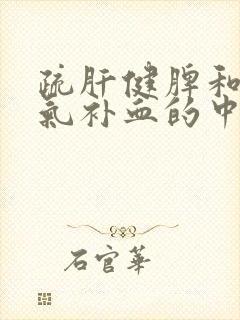 疏肝健脾和
氣补血的中
石官華